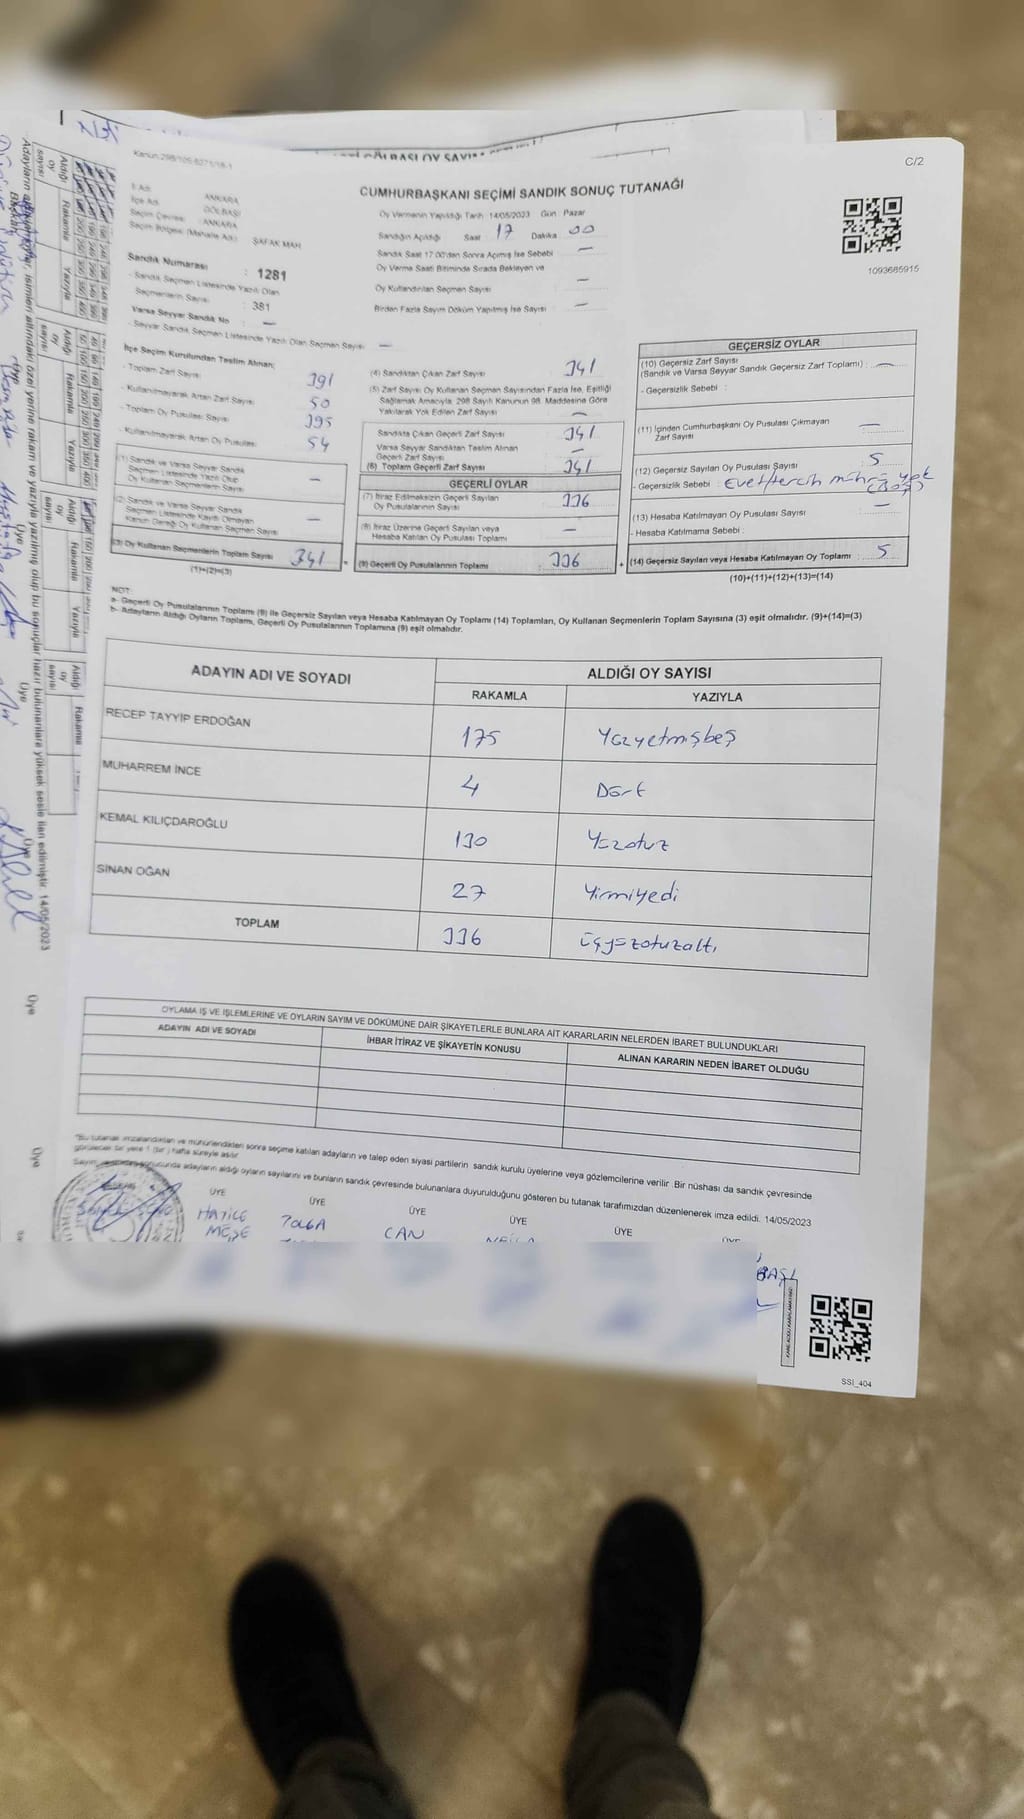 C/2
CUMHURBAŞKANI SEÇİMİ SANDIK SONUÇ TUTANAĞI
1093685915
İl Adı ANKARA
İlçe Adı GÖLBAŞI
Seçim Çevresi ANKARA
Seçim Bölgesi (Mahalle Adı) ŞAFAK MAH
Sandık Numarası : 1281
- Sandık Seçmen Listesinde Yazılı Olan
Seçmenlerin Sayısı : 381
Varsa Seyyar Sandık No : —
- Seyyar Sandık Seçmen Listesinde Yazılı Olan Seçmen Sayısı —
Oy Vermenin Yapıldığı Tarih: 14/05/2023 Gün: Pazar
Sandığın Açıldığı Saat : 17 Dakika : 00
Sandık Saat 17:00'den Sonra Açılmış İse Sebebi —
Oy Verme Saati Bitiminde Sırada Bekleyen ve
Oy Kullandırılan Seçmen Sayısı —
Birden Fazla Sayım Döküm Yapılmış İse Sayısı —
İlçe Seçim Kurulundan Teslim Alınan;
- Toplam Zarf Sayısı 391
- Kullanılmayarak Artan Zarf Sayısı 50
- Toplam Oy Pusulası Sayısı 395
- Kullanılmayarak Artan Oy Pusulası 54
(1) Sandık ve Varsa Seyyar Sandık
Seçmen Listesinde Yazılı Olup
Oy Kullanan Seçmenlerin Sayısı —
(2) Sandık ve Varsa Seyyar Sandık
Seçmen Listesinde Kayıtlı Olmayan
Kanun Gereği Oy Kullanan Seçmen Sayısı —
(3) Oy Kullanan Seçmenlerin Toplam Sayısı 341
(1)+(2)=(3)
(4) Sandıktan Çıkan Zarf Sayısı 341
(5) Zarf Sayısı Oy Kullanan Seçmen Sayısından Fazla İse, Eşitliği
Sağlamak Amacıyla 298 Sayılı Kanunun 98. Maddesine Göre
Yakılarak Yok Edilen Zarf Sayısı —
Sandıkta Çıkan Geçerli Zarf Sayısı 341
Varsa Seyyar Sandıktan Teslim Alınan
Geçerli Zarf Sayısı —
(6) Toplam Geçerli Zarf Sayısı 341
GEÇERLİ OYLAR
(7) İtiraz Edilmeksizin Geçerli Sayılan
Oy Pusulalarının Sayısı 336
(8) İtiraz Üzerine Geçerli Sayılan veya
Hesaba Katılan Oy Pusulası Toplamı —
(9) Geçerli Oy Pusulalarının Toplamı 336
GEÇERSİZ OYLAR
(10) Geçersiz Zarf Sayısı
(Sandık ve Varsa Seyyar Sandık Geçersiz Zarf Toplamı) : —
- Geçersizlik Sebebi :
(11) İçinden Cumhurbaşkanı Oy Pusulası Çıkmayan
Zarf Sayısı —
(12) Geçersiz Sayılan Oy Pusulası Sayısı 5
- Geçersizlik Sebebi : Evet/tercih mührü yok
(BOŞ)
(13) Hesaba Katılmayan Oy Pusulası Sayısı —
- Hesaba Katılmama Sebebi :
(14) Geçersiz Sayılan veya Hesaba Katılmayan Oy Toplamı : 5
(10)+(11)+(12)+(13)=(14)
NOT:
a- Geçerli Oy Pusulalarının Toplamı (9) ile Geçersiz Sayılan veya Hesaba Katılmayan Oy Toplamı (14) Toplamları, Oy Kullanan Seçmenlerin Toplam Sayısına (3) eşit olmalıdır. (9)+(14)=(3)
b- Adayların Aldığı Oyların Toplamı, Geçerli Oy Pusulalarının Toplamına (9) eşit olmalıdır.
ADAYIN ADI VE SOYADI ALDIĞI OY SAYISI
RAKAMLA YAZIYLA
RECEP TAYYİP ERDOĞAN 175 Yüzyetmişbeş
MUHARREM İNCE 4 Dört
KEMAL KILIÇDAROĞLU 130 Yüzotuz
SİNAN OĞAN 27 Yirmiyedi
TOPLAM 336 üçyüzotuzaltı
OYLAMA İŞ VE İŞLEMLERİNE VE OYLARIN SAYIM VE DÖKÜMÜNE DAİR ŞİKAYETLERLE BUNLARA AİT KARARLARIN NELERDEN İBARET BULUNDUKLARI
ADAYIN ADI VE SOYADI İHBAR İTİRAZ VE ŞİKAYETİN KONUSU ALINAN KARARIN NEDEN İBARET OLDUĞU
*Bu tutanak imzalandıktan ve mühürlendikten sonra seçime katılan adayların ve talep eden siyasi partilerin sandık kurulu üyelerine veya gözlemcilerine verilir. Bir nüshası da sandık çevresinde
görülecek bir yere 1 (bir) hafta süreyle asılır.
Sayım ve sonucunda adayların aldığı oyların sayılarını ve bunların sandık çevresinde bulunanlara duyurulduğunu gösteren bu tutanak tarafımızdan düzenlenerek imza edildi. 14/05/2023
ÜYE ÜYE ÜYE ÜYE ÜYE ÜYE
HATİCE TOLGA CAN
MEŞE
SSI_404
Adayların isimleri altındaki özel yerine rakam ve yazıyla yazılmış olup bu sonuçlar hazır bulunanlara yüksek sesle ilan edilmiştir. 14/05/2023
Üye Üye Üye Üye Üye Üye
Aldığı oy sayısı Rakamla Yazıyla
Aldığı oy sayısı Rakamla Yazıyla
Aldığı oy sayısı Rakamla Yazıyla
Aldığı oy sayısı Rakamla